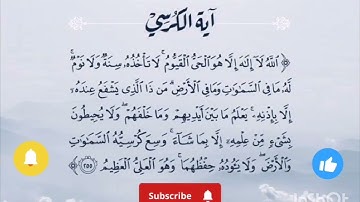 آية الكرسي
﴿ ٱللَّهُ لَآ إِلَٰهَ إِلَّا هُوَ ٱلْحَىُّ ٱلْقَيُّومُ ۚ لَا تَأْخُذُهُۥ سِنَةٌ وَلَا نَوْمٌ ۚ
لَّهُۥ مَا فِى ٱلسَّمَٰوَٰتِ وَمَا فِى ٱلْأَرْضِ ۗ مَن ذَا ٱلَّذِى يَشْفَعُ عِندَهُۥٓ
إِلَّا بِإِذْنِهِۦ ۚ يَعْلَمُ مَا بَيْنَ أَيْدِيهِمْ وَمَا خَلْفَهُمْ ۖ وَلَا يُحِيطُونَ
بِشَىْءٍ مِّنْ عِلْمِهِۦٓ إِلَّا بِمَا شَآءَ ۚ وَسِعَ كُرْسِيُّهُ ٱلسَّمَٰوَٰتِ
وَٱلْأَرْضَ ۖ وَلَا يَـُٔودُهُۥ حِفْظُهُمَا ۚ وَهُوَ ٱلْعَلِىُّ ٱلْعَظِيمُ ﴿٢٥٥﴾
Subscribe